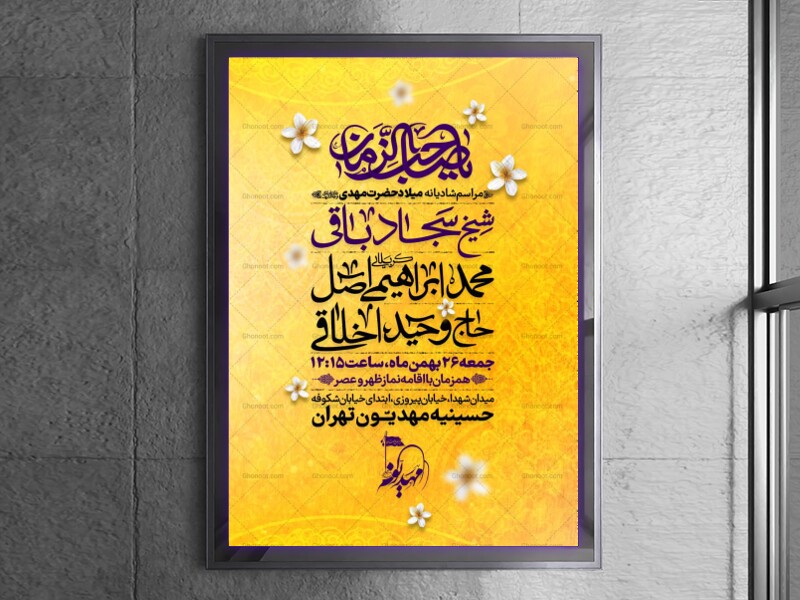 یا صاحب الزمان
مراسم شادیانه میلاد حضرت مهدی
شیخ سجاد باقی
کربلایی
محمد ابراهیمی اصل
حاج وحید اخلاقی
جمعه ۲۶ بهمن ماه، ساعت ۱۲:۱۵
همزمان با اقامه نماز ظهر و عصر
میدان شهدا، خیابان پیروزی، ابتدای خیابان شکوفه
حسینیه مهدیون تهران
مهدیون